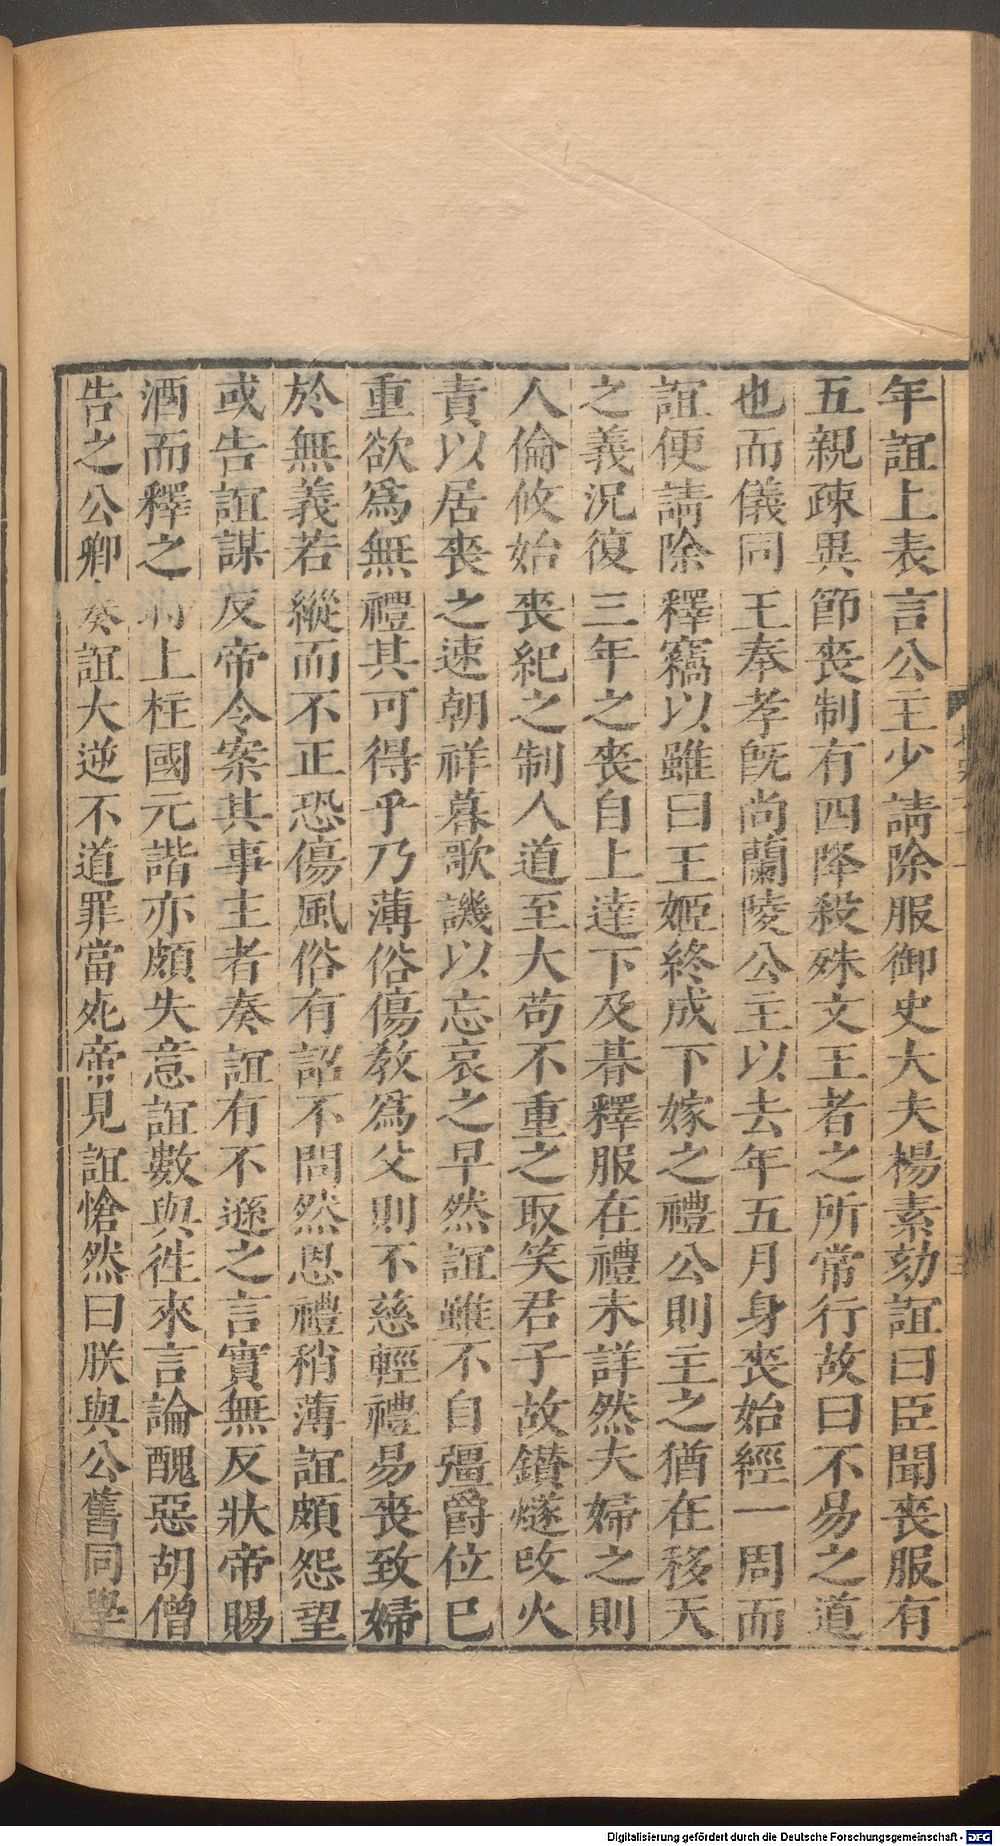 年誼上表言公主少請除服御史大夫楊素劾誼曰臣聞喪服有
五親疎異節喪制有四降殺殊文王者之所常行故曰不易之道
也而儀同王奉孝旣尚蘭陵公主以去年五月身喪始經一周而
誼便請除釋竊以雖曰王姬終成下嫁之禮公則主之猶在移天
之義況復三年之喪自上達下及朞釋服在禮未詳然夫婦之則
人倫攸始喪紀之制人道至大苟不重之取笑君子故鑚燧改火
責以居喪之速朝祥暮歌譏以忘哀之早然誼雖不自彊爵位已
重欲爲無禮其可得乎乃薄俗傷教爲父則不慈輕禮易喪致婦
於無義若縱而不正恐傷風俗有詔不問然恩禮稍薄誼頗怨望
或告誼謀反帝令案其事主者奏誼有不遜之言實無反狀帝賜
酒而釋之時上柱國元諧亦頗失意誼數與徃來言論醜惡胡僧
告之公卿奏誼大逆不道罪當死帝見誼愴然曰朕與公舊同學
Digitalisierung gefördert durch die Deutsche Forschungsgemeinschaft - DFG